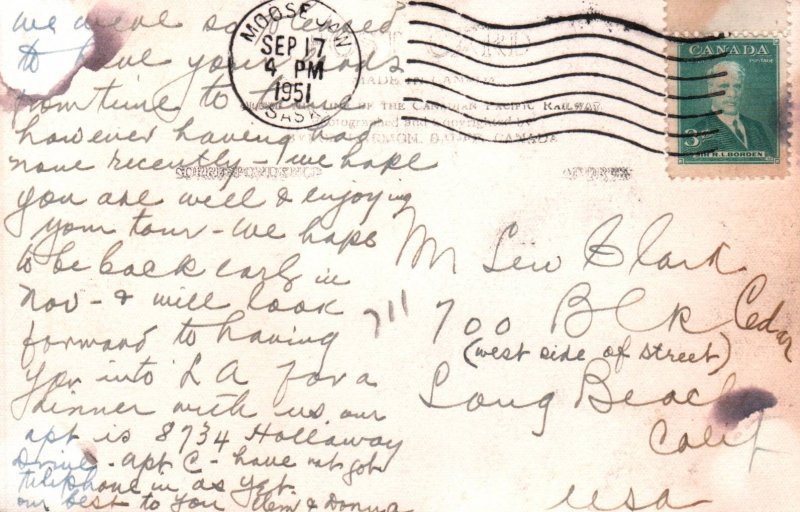 we were so pleased
to have your cards
from time to time
however having had
none recently - we hope
you are well & enjoying
your tour - we hope
to be back early in
Nov - & will look
forward to having
you into L A for a
dinner with us. our
apt is 8734 Hollaway
Drive - apt C - have not got
telephone in as yet.
our best to you Clem & Donna
MOOSE JAW
SEP 17
4 PM
1951
SASK
POST CARD
MADE IN CANADA
OF THE CANADIAN PACIFIC RAILWAY
Photographed and copyrighted by
HARMON, BANFF, CANADA
CORRESPONDENCE
CANADA
POSTAGE
3
SIR R.L. BORDEN
Mr Lew Clark
711
700 Blk Cedar
(west side of street)
Long Beach
Calif
USA